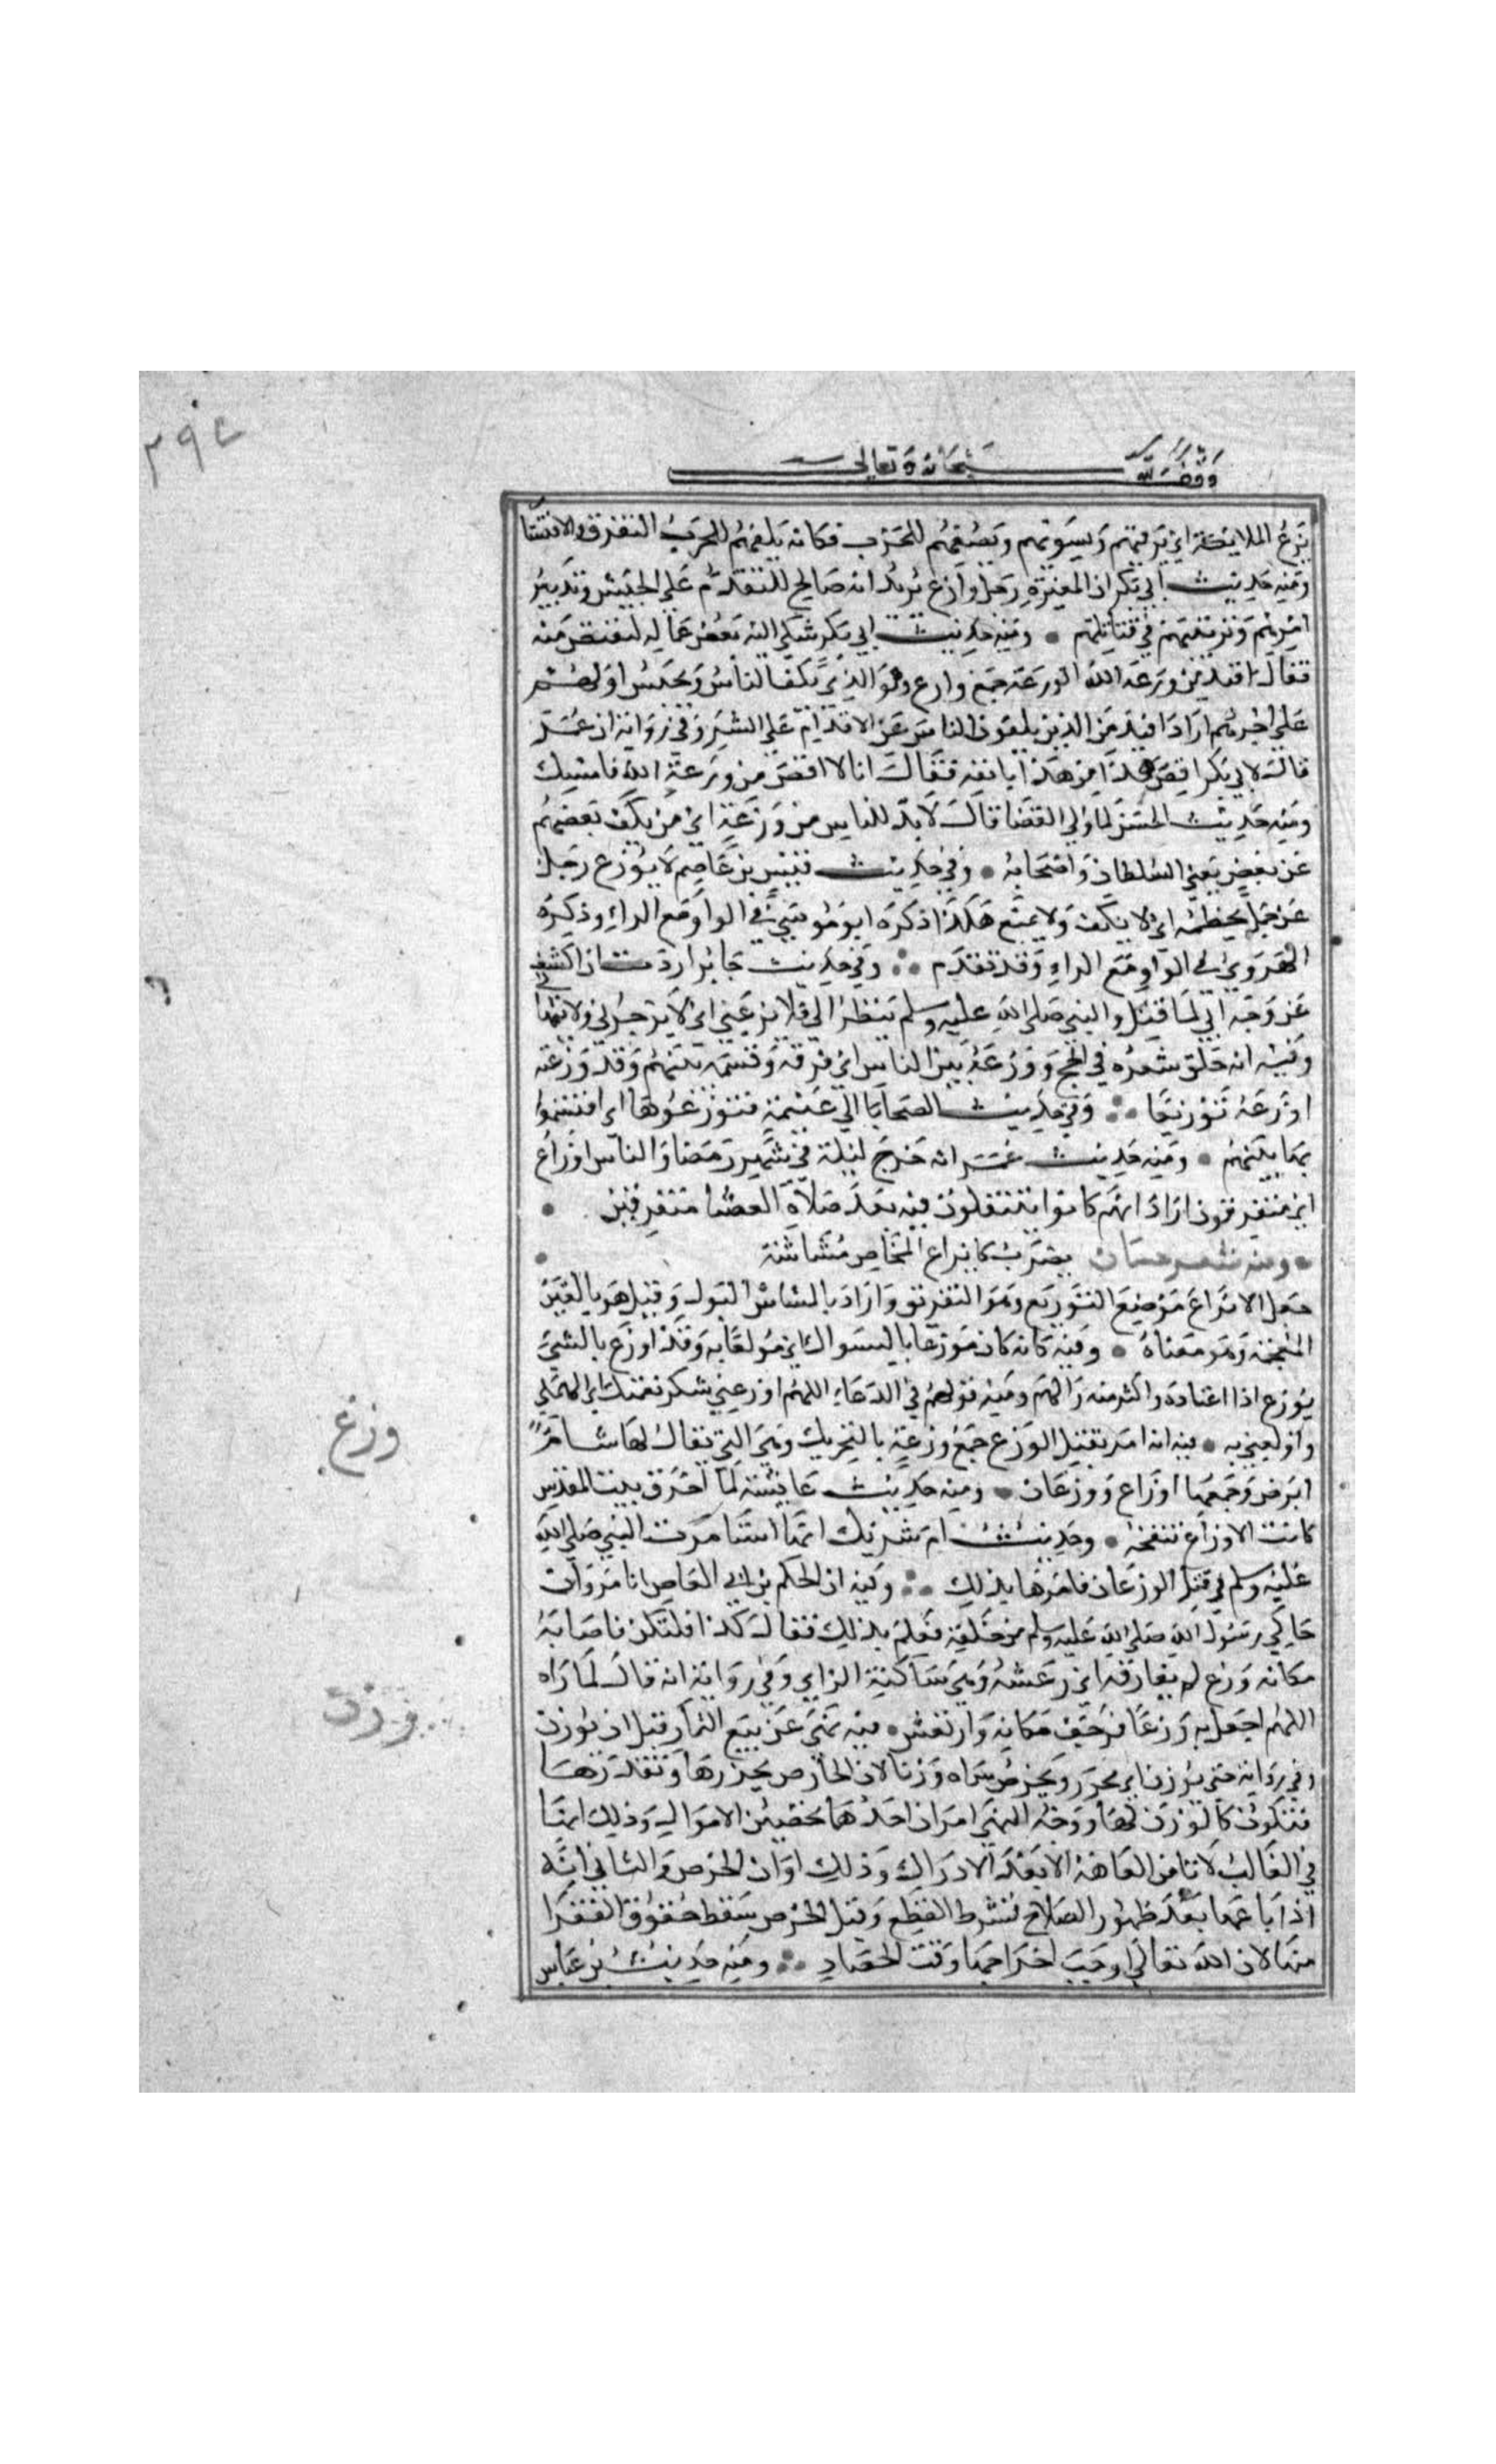 ٣٩٤
وقف لله سبحانه وتعالى
يزع الملايكة اي يرتبهم ويسويهم ويصفهم للحرب فكانه يكفهم للحرب التفرق والانتشا
ومنه حديث ابي بكر ان المغيرة رجل وازع يريد انه صالح للتقدم على الجيش وتدبير
امرهم وترتيبهم في قتالهم ومنه حديث ابي بكر شكي اليه بعض عماله ليقتص منه
فقال اقيد من وزعة الله الوزعة جمع وازع وهو الذي يكف الناس ويحبس اولهم
على اخرهم اراد اقيد من الذين يكفون الناس عن الاقدام على الشر وفي رواية ان عمر
قال لابي بكر اقص هذا من هذا بانفه فقال انا لا اقص من وزعة الله فامسك
ومنه حديث الحسن لما ولي القضا قال لا بد للناس من وزعة اي من يكف بعضهم
عن بعض يعني السلطان واصحابه وفي حديث قيس بن عاصم لا يوزع رجل
عن جمل يخطمه اي لا يكف ولا يمنع هكذا ذكره ابو موسى في الواو مع الزاء وذكره
الهروي في الواو مع الراء وقد تقدم وفي حديث جابر اردت ان اكشف
عن وجه ابي لما قتل والنبي صلى الله عليه وسلم ينظر الي فلا يزعني اي لا يزجرني ولا ينهاني
وفيه انه حلق شعره في الحج ووزعه بين الناس اي فرقه وقسمه بينهم وقد وزعته
اوزعه توزيعا وفي حديث الضحايا الي غنيمة فتوزعوها اي اقتسموا
بها بينهم ومنه حديث عمر انه خرج ليلة في شهر رمضان والناس اوزاع
اي متفرقون اراد انهم كانوا يتنفلون فيه بعد صلاة العشا متفرقين
ومنه شعر حسان بضرب كايزاع المخاض مشاشه
جعل الايزاع موضع التوزيع وهو التفريق واراد بالمشاش البول وقيل هو بالغين
المعجمة وهو معناه وفيه كانه كان موزعا بالسواك اي مولعا به وقد اوزع بالشي
يوزع اذا اعتاده واكثر منه والهم ومنه قولهم في الدعاء اللهم اوزعني شكر نعمتك اي الهمني
واولعني به فيه انه امر بقتل الوزغ جمع وزغة بالتحريك وهي التي يقال لها سام
ابرص وجمعها اوزاغ ووزغان ومنه حديث عايشة لما احترق بيت المقدس
كانت الاوزاغ تنفخه وحديث ام شريك انها استامرت النبي صلى الله
عليه وسلم في قتل الوزغان فامرها بذلك وفيه ان الحكم بن ابي العاص ابا مروان
حاكي رسول الله صلى الله عليه وسلم من خلفه فعلم بذلك فقال كذا فلتكن فاصابه
مكانه وزغ لم يفارقه اي رعشة وهي ساكنة الزاي وفي رواية انه قال لما راه
اللهم اجعل به وزغا فرجف مكانه وارتعش فيه نهى عن بيع الثمار قبل ان توزن
وفي رواية حتى توزن اي تحزر وتخرص سماه وزنا لان الخارص يحزرها ويقدرها
فتكون كالوزن لها ووجه النهي امران احدهما تحصين الاموال وذلك انها
في الغالب لا تامن العاهة الا بعد الادراك وذلك اوان الخرص والثاني انه
اذا باعها بعد ظهور الصلاح بشرط القطع وقبل الخرص سقط حقوق الفقرا
منها لان الله تعالى اوجب اخراجها وقت الحصاد ومنه حديث بن عباس
وزغ
وزن